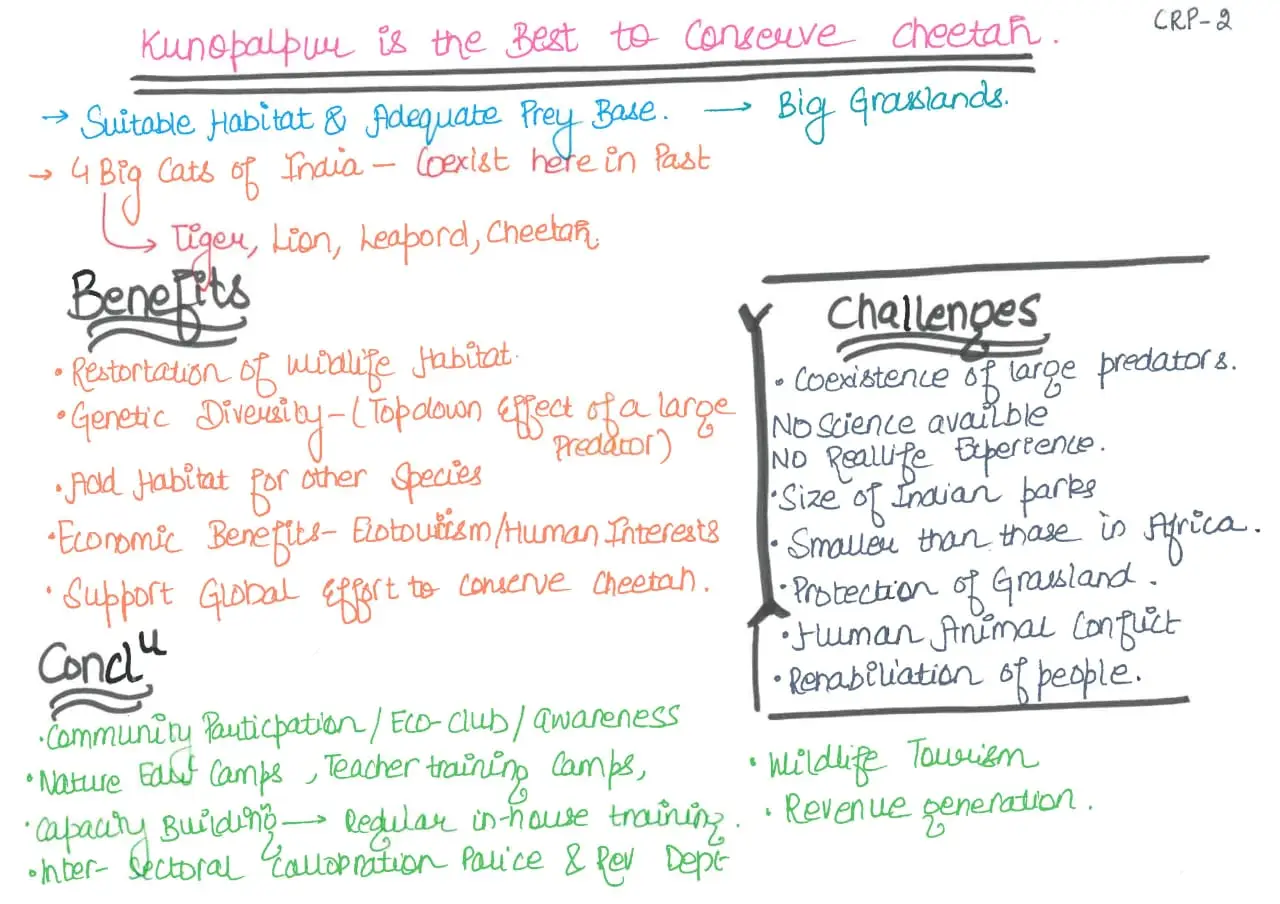 CRP-2
Kunopalpur is the Best to Conserve Cheetah.
→ Suitable Habitat & Adequate Prey Base. → Big Grasslands.
→ 4 Big Cats of India - Coexist here in Past
→ Tiger, Lion, Leapord, Cheetah.
Benefits
• Restortation of Wildlife Habitat.
• Genetic Diversity - (Topdown Effect of a large
Predator)
• Add Habitat for other Species
• Economic Benefits - Ecotourism/Human Interests
• Support Global Effort to conserve Cheetah.
Challenges
• Coexistence of large predators.
NO Science availble
NO Reallife Experience.
• Size of Indian parks
• Smaller than those in Africa.
• Protection of Grassland.
• Human Animal Conflict
• Rehabiliation of people.
Conclu
• Community Particpation / Eco-Club / awareness
• Nature Camps, Teacher training Camps,
• Capacity Building → Regular in-house training.
• Inter-Sectoral Police & Rev Dept
• Wildlife Tourism
• Revenue generation.